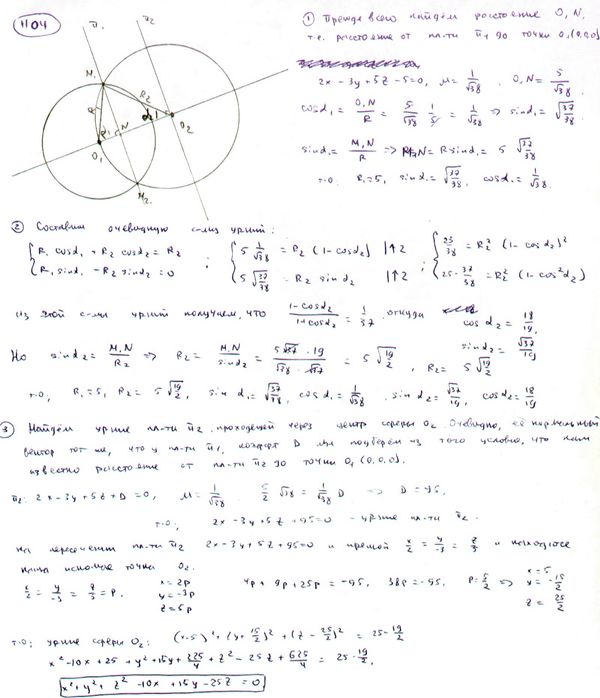 1104
π₁
π₂
M₁
R₂
R
α₁ N
α₂
O₁
O₂
M₂
① Прежде всего найдём расстояние O₁N,
т.е. расстояние от пл-ти π₁ до точки O₁(0,0,0)
2x - 3y + 5z - 5 = 0, M = 1/√38, O₁N = 5/√38
cosα₁ = O₁N/R = 5/√38 · 1/5 = 1/√38 ⇒ sinα₁ = √(37/38)
sinα₁ = M₁N/R ⇒ M₁N = R sinα₁ = 5√(37/38)
т.о. R₁=5, sinα₁ = √(37/38), cosα₁ = 1/√38
② Составим очевидную с-му ур-ний:
{R₁cosα₁ + R₂cosα₂ = R₂; R₁sinα₁ - R₂sinα₂ = 0 ; {5 1/√38 = R₂(1-cosα₂) |↑2; 5√(37/38) = R₂ sinα₂ |↑2 ; {25/38 = R₂²(1-cosα₂)²; 25·37/38 = R₂²(1-cos²α₂)
Из этой с-мы ур-ний получаем, что (1-cosα₂)/(1+cosα₂) = 1/37, откуда cosα₂ = 18/19,
sinα₂ = √37/19
Но sinα₂ = M₁N/R₂ ⇒ R₂ = M₁N/sinα₂ = 5√37·19/(√38·√37) = 5√(19/2), R₂ = 5√(19/2)
т.о, R₁=5, R₂=5√(19/2), sinα₁ = √(37/38), cosα₁ = 1/√38, sinα₂ = √37/19, cosα₂ = 18/19
③ Найдём ур-ние пл-ти π₂, проходящей через центр сферы O₂. Очевидно, её нормальный
вектор тот же, что у пл-ти π₁, коэфф D мы подберём из того условия, что нам
известно расстояние от пл-ти π₂ до точки O₁(0,0,0).
π₂: 2x - 3y + 5z + D = 0, M = 1/√38, 5/2 √38 = 1/√38 D ⇒ D = 95,
т.о, 2x - 3y + 5z + 95 = 0 - ур-ние пл-ти π₂.
На пересечении пл-ти π₂ 2x - 3y + 5z + 95 = 0 и прямой x/2 = y/-3 = z/5 и находится
наша искомая точка O₂.
x/2 = y/-3 = z/5 = p. x=2p y=-3p z=5p 4p + 9p + 25p = -95, 38p = -95, p = 5/2 ⇒ x=5 y=-15/2 z=25/2
т.о; ур-ние сферы O₂: (x-5)² + (y+15/2)² + (z-25/2)² = 25·19/2
x² - 10x + 25 + y² + 15y + 225/4 + z² - 25z + 625/4 = 25·19/2,
x² + y² + z² - 10x + 15y - 25z = 0